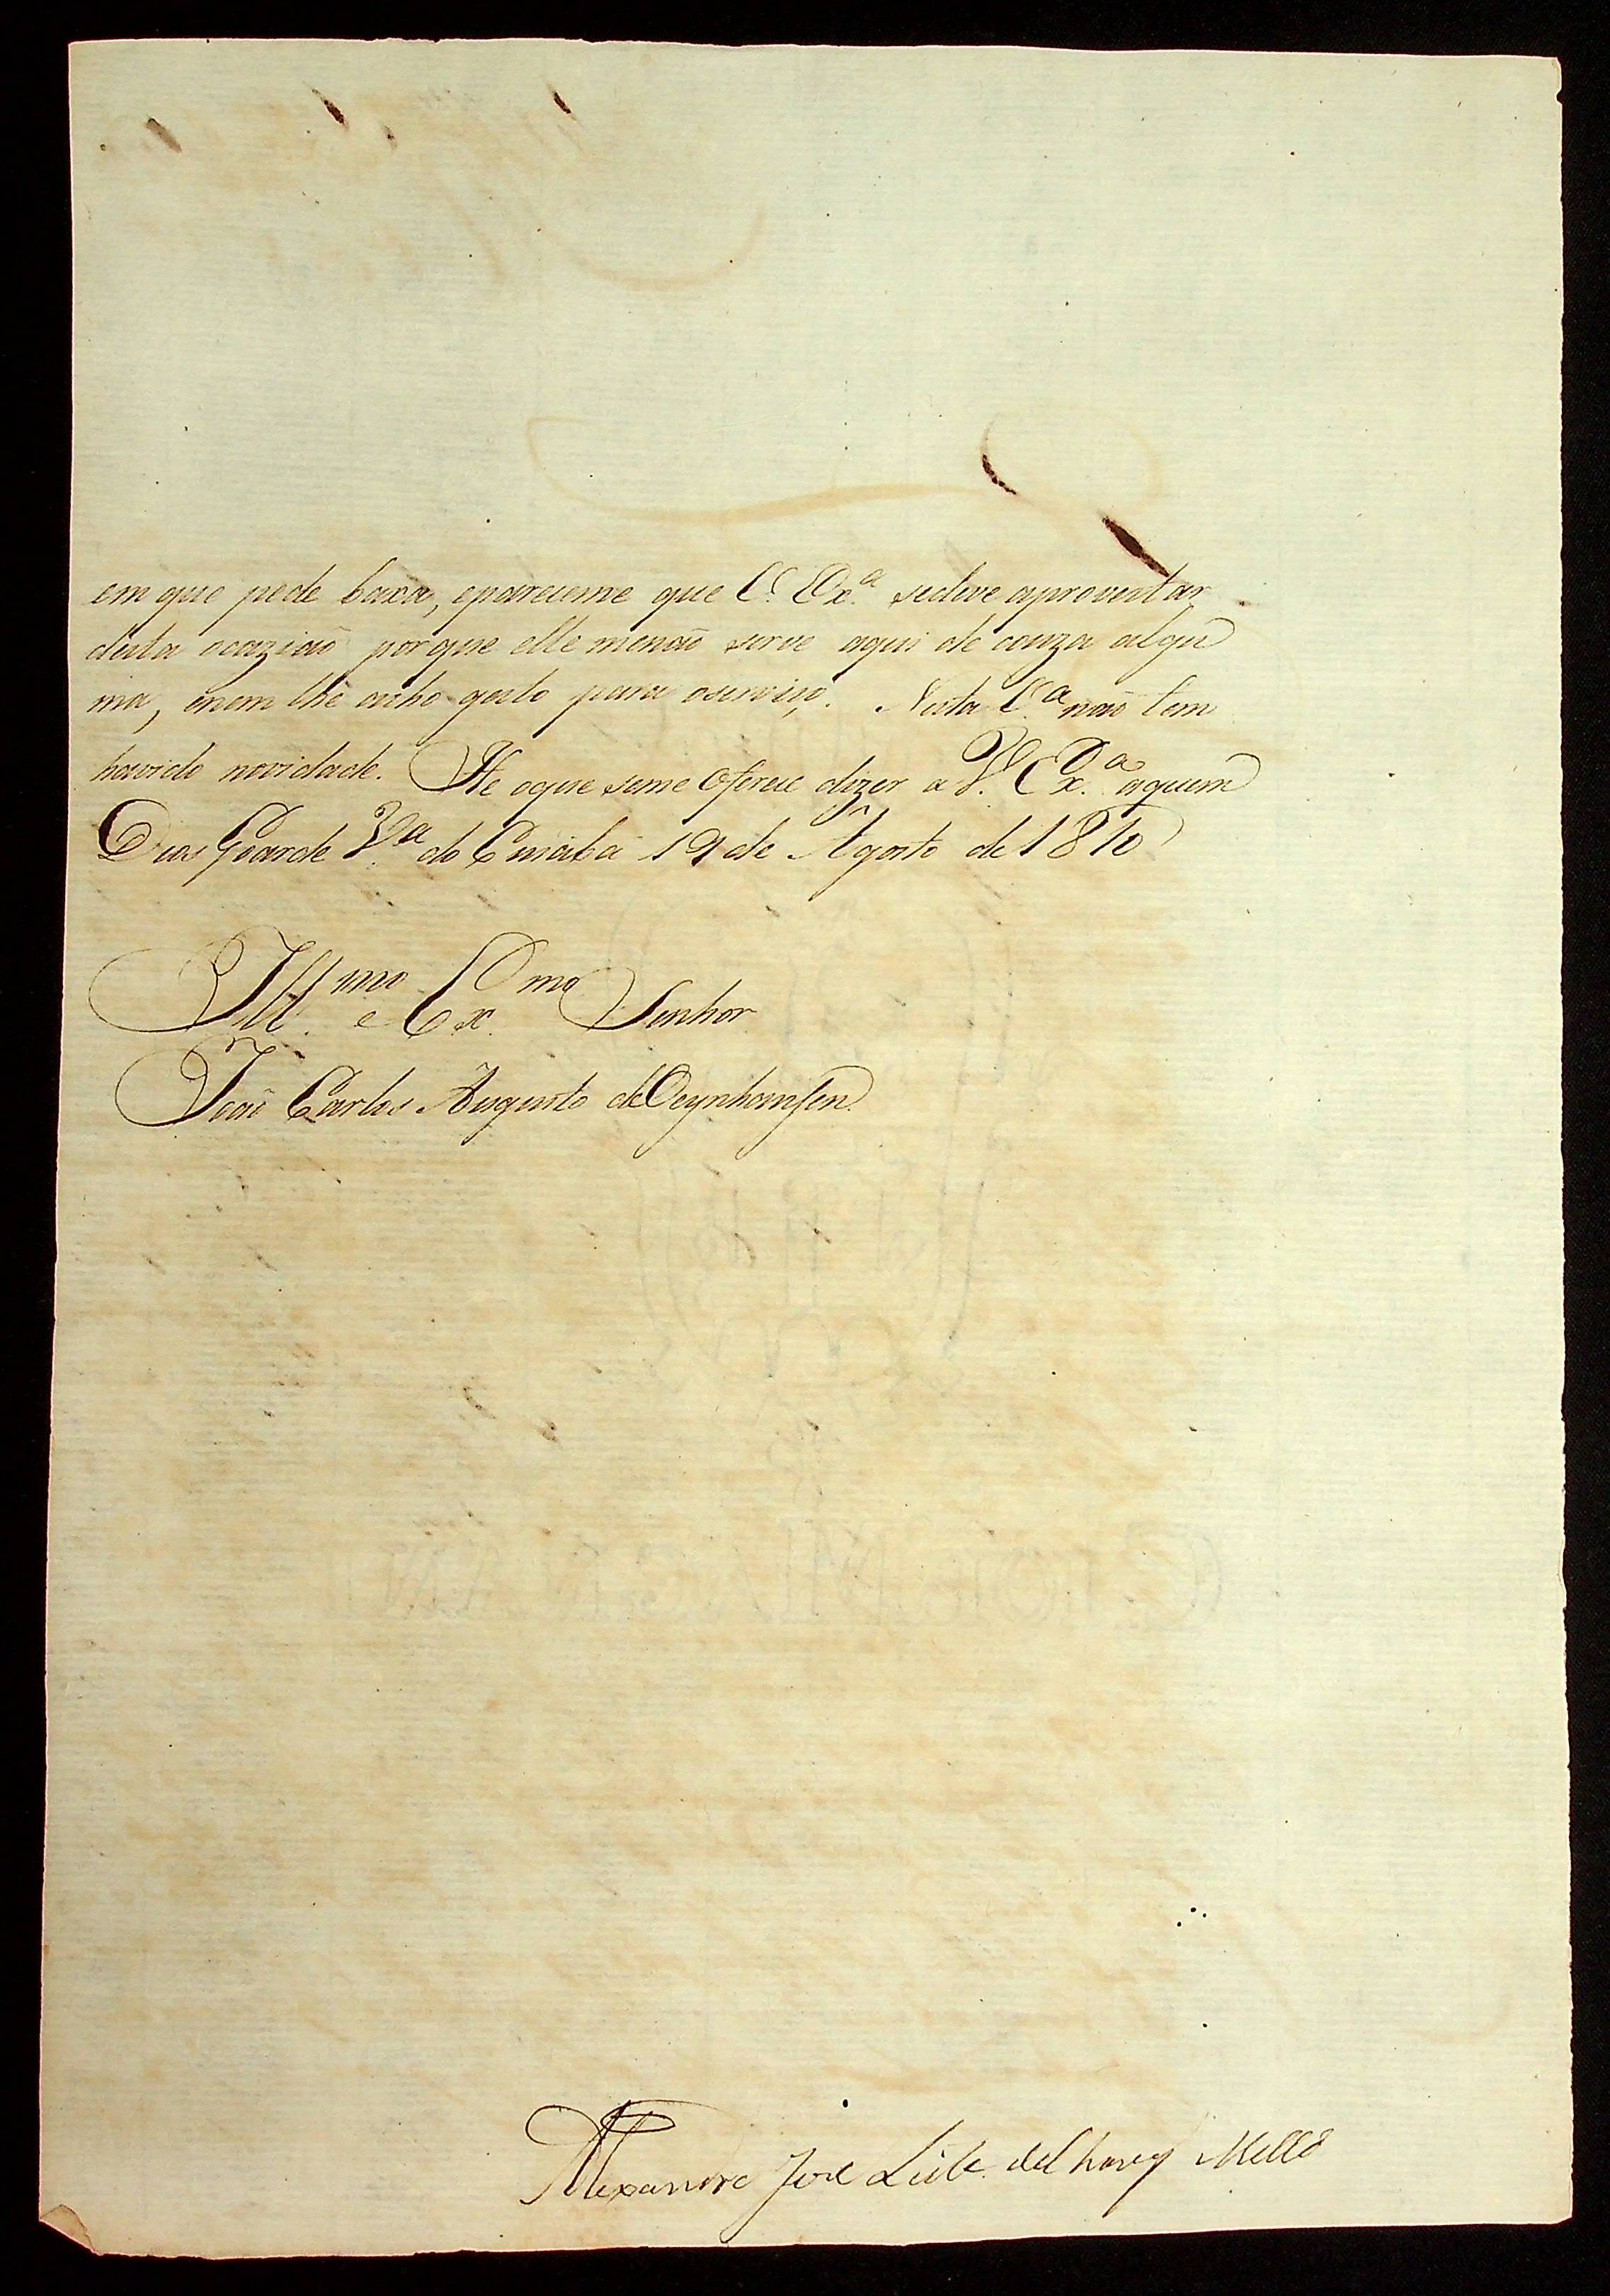 em que pede baxa, epareceme que V. Ex.ª sedeve aproveitar
desta ocaziaõ porque elle menaõ serve aqui de couza algũ
ma, enem lhe acho geito para oserviço. Nesta V.ª naõ tem
havido novidade. He oque seme oferece dizer a V. Ex.ª aquem
Deos Goarde V.ª do Cuiabá 19 de Agosto de 1810
Ill.mo e Ex.mo Senhor
Joaõ Carlos Augusto deOeynhausen.
Alexandre Joze Leite Mello